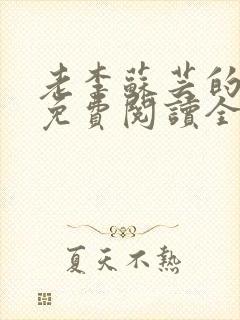 老李蘇芸的
免費閱讀全
夏天不熱